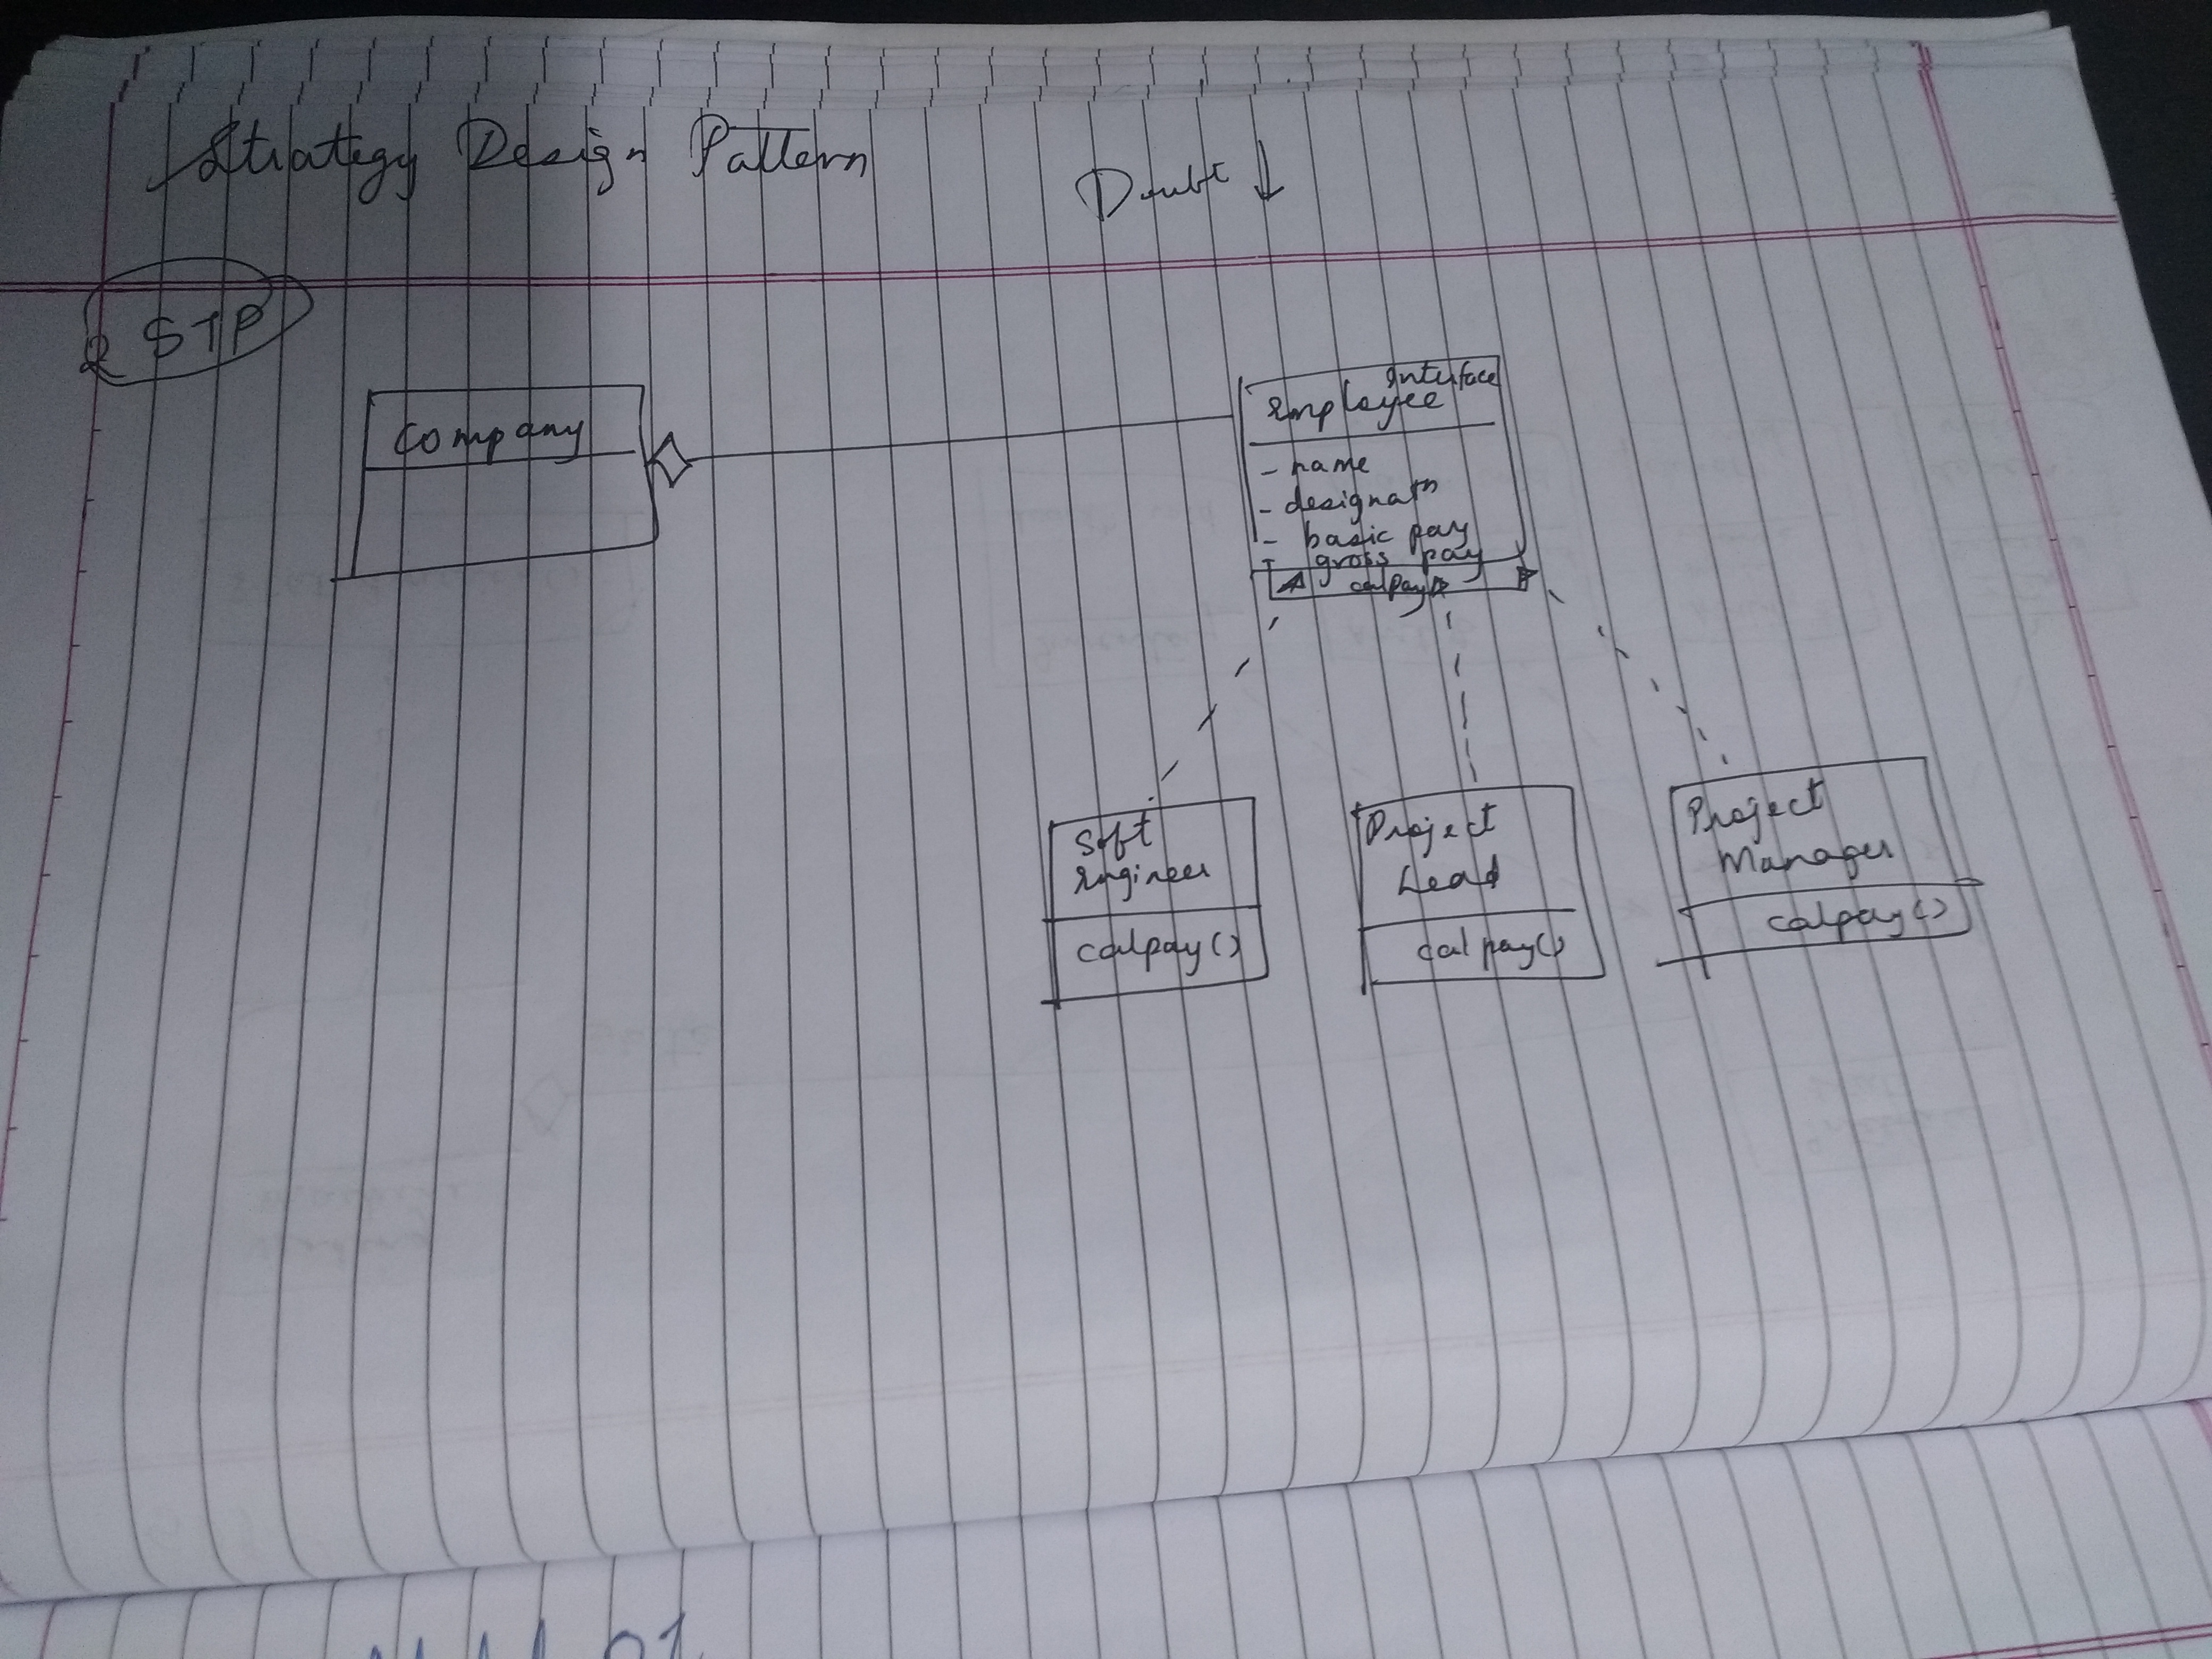 Strategy Design Pattern
Doubt ↓
STP
Company
Interface
Employee
- name
- designatn
- basic pay
- gross pay
calpay
Soft
Engineer
calpay()
Project
Lead
calpay()
Project
Manager
calpay()